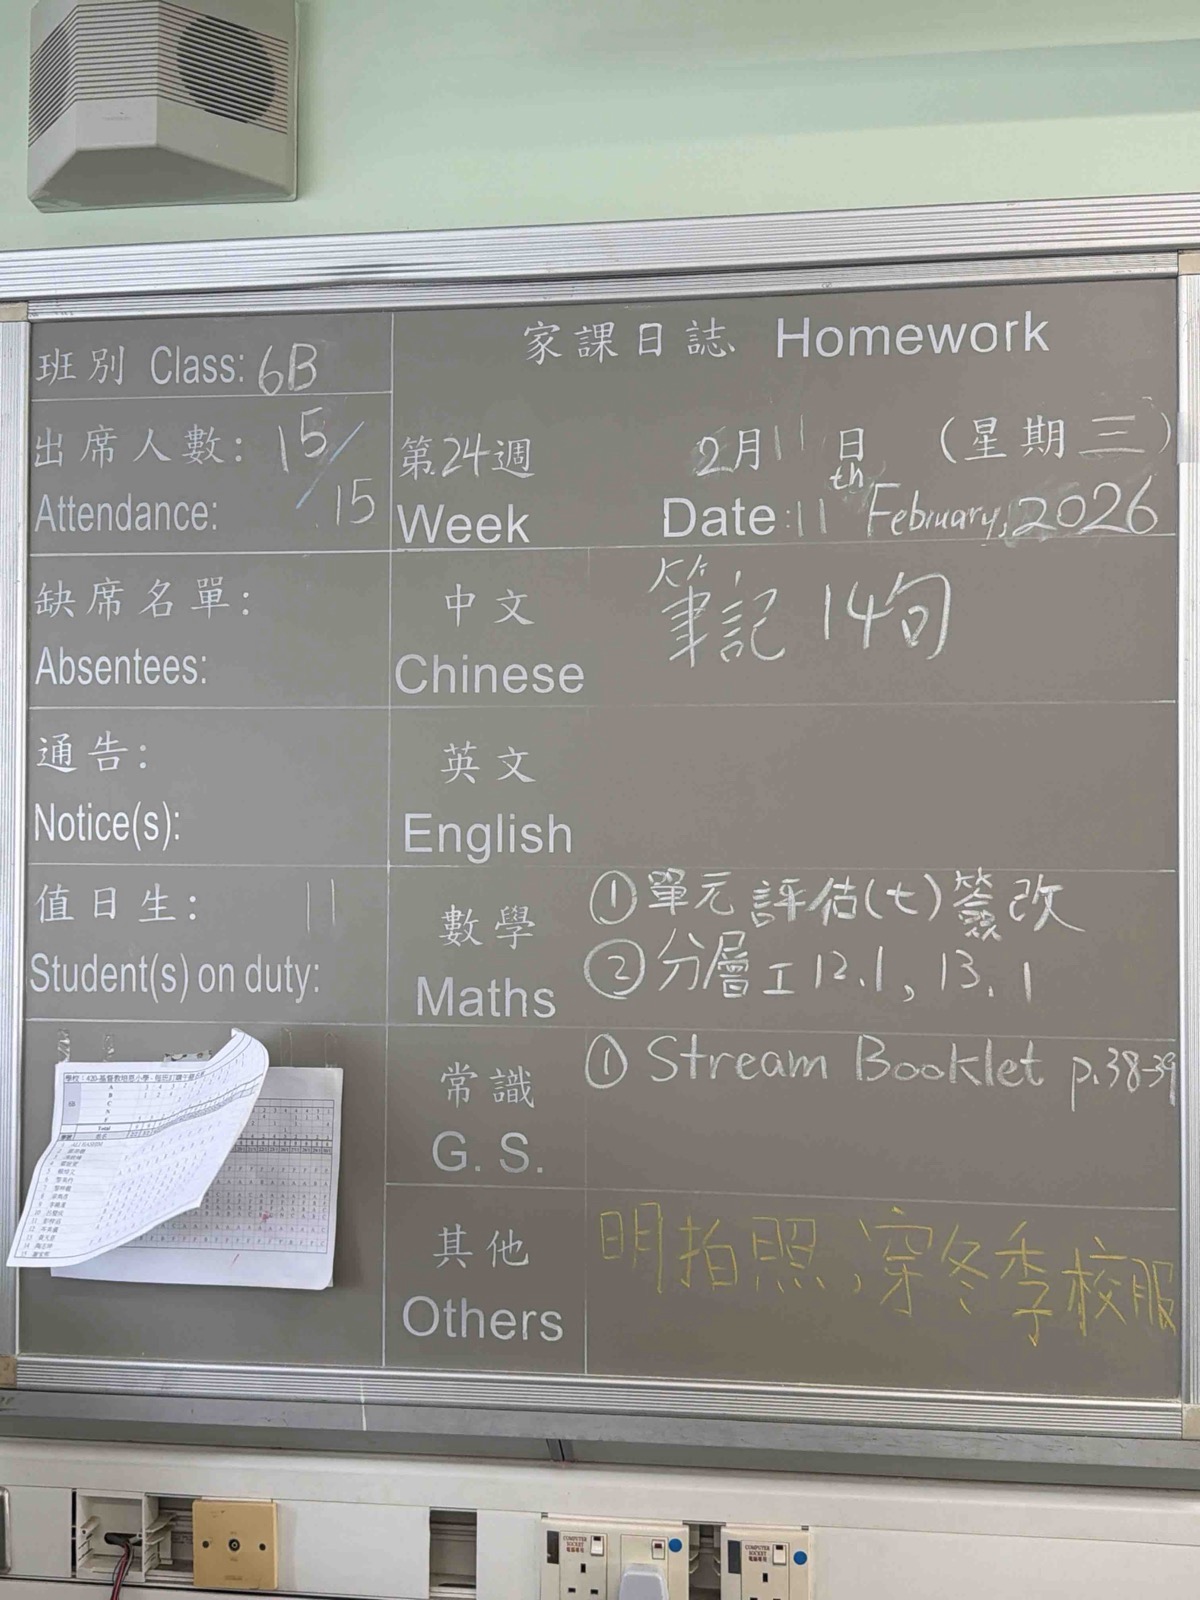 家課日誌 Homework
班別 Class: 6B
出席人數: 15/15
Attendance:
第24週
Week
2月11日 (星期三)
Date: 11th February, 2026
缺席名單:
Absentees:
中文
Chinese
筆記 14句
通告:
Notice(s):
英文
English
值日生: 11
Student(s) on duty:
數學
Maths
①單元評估(七)簽改
②分層工12.1, 13.1
常識
G. S.
① Stream Booklet p.38-39
其他
Others
明拍照,穿冬季校服
Total
COMPUTER
SOCKET
電腦專用
COMPUTER
SOCKET
電腦專用